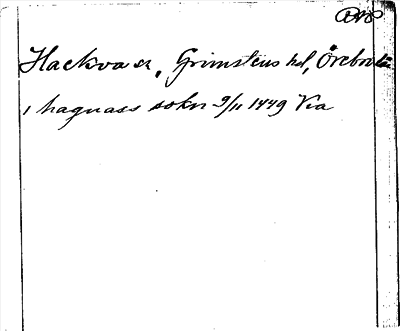 Hackva sn, Grimstens hd, Örebro län
i haquass sokn 9/11 1449 Via